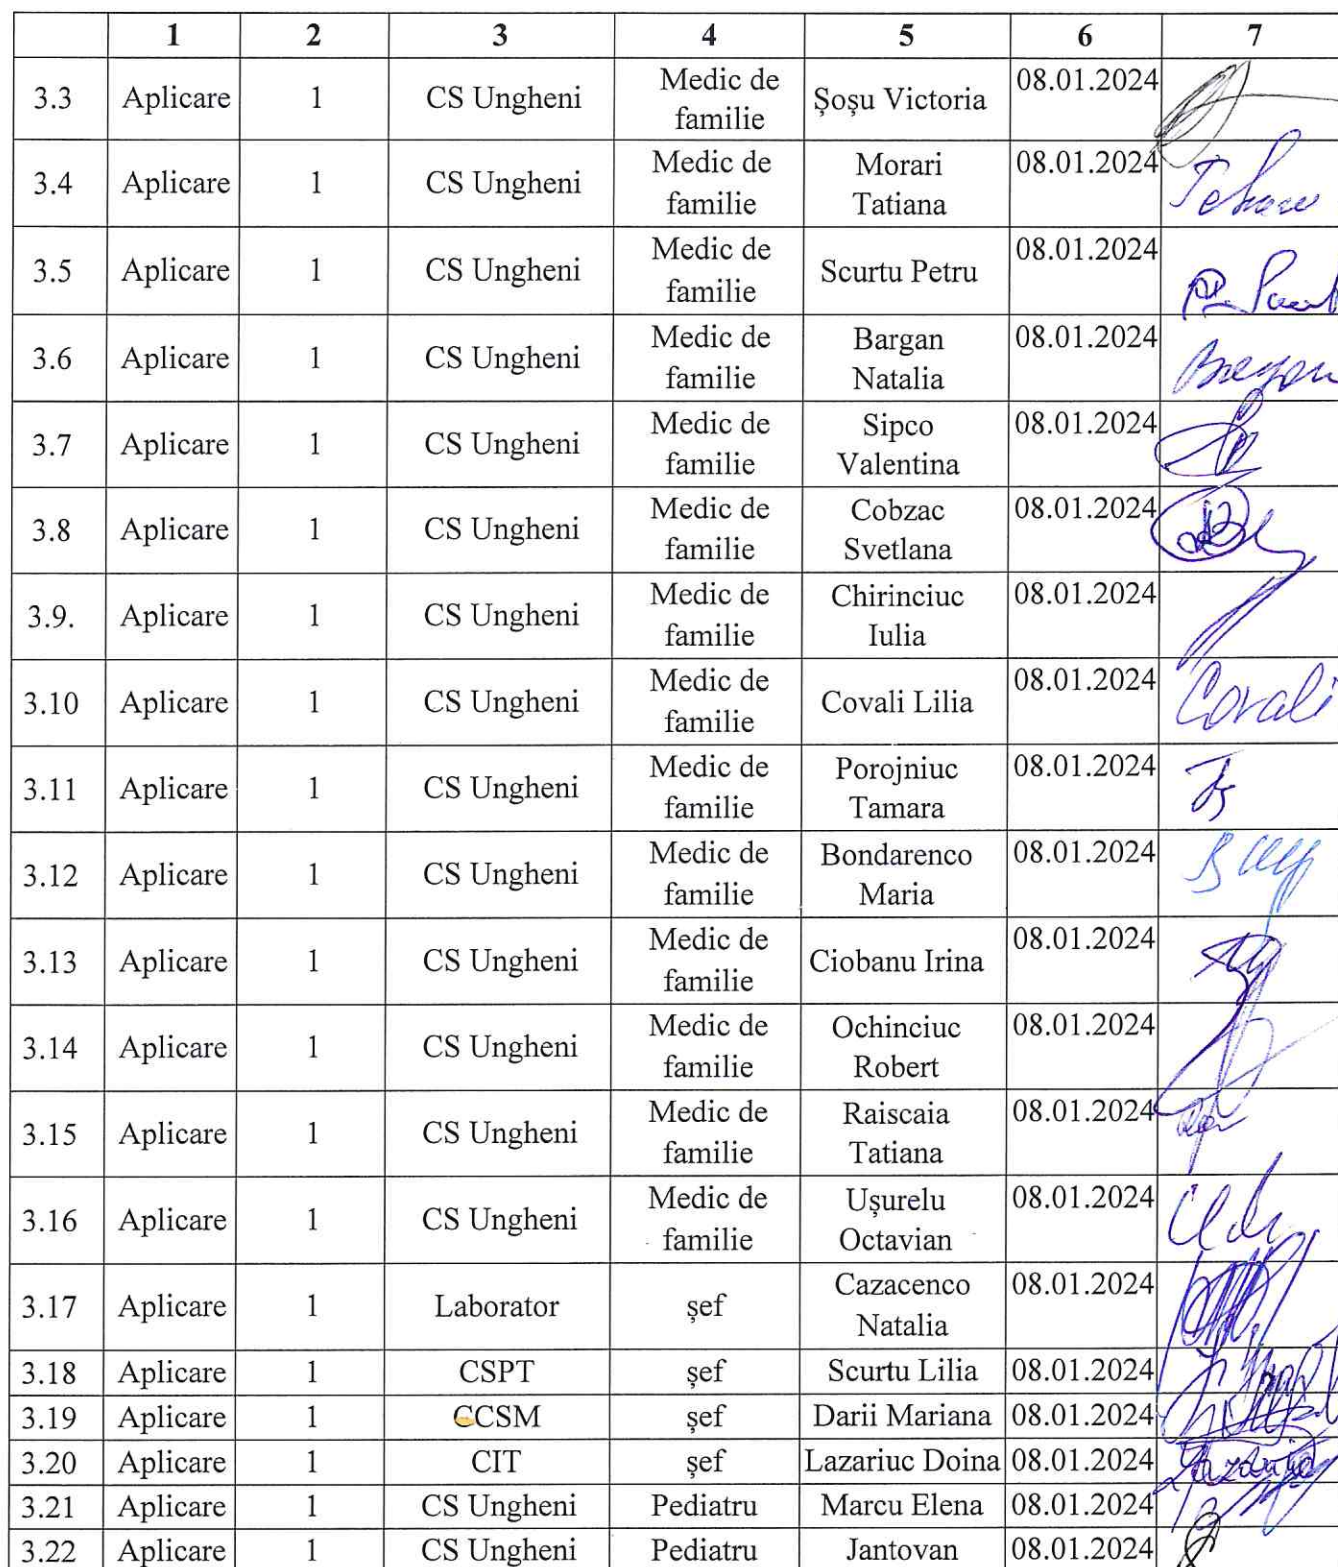 1 2 3 4 5 6 7
3.3 Aplicare 1 CS Ungheni Medic de familie Șoșu Victoria 08.01.2024
3.4 Aplicare 1 CS Ungheni Medic de familie Morari Tatiana 08.01.2024
3.5 Aplicare 1 CS Ungheni Medic de familie Scurtu Petru 08.01.2024
3.6 Aplicare 1 CS Ungheni Medic de familie Bargan Natalia 08.01.2024
3.7 Aplicare 1 CS Ungheni Medic de familie Sipco Valentina 08.01.2024
3.8 Aplicare 1 CS Ungheni Medic de familie Cobzac Svetlana 08.01.2024
3.9. Aplicare 1 CS Ungheni Medic de familie Chirinciuc Iulia 08.01.2024
3.10 Aplicare 1 CS Ungheni Medic de familie Covali Lilia 08.01.2024 Covali
3.11 Aplicare 1 CS Ungheni Medic de familie Porojniuc Tamara 08.01.2024
3.12 Aplicare 1 CS Ungheni Medic de familie Bondarenco Maria 08.01.2024
3.13 Aplicare 1 CS Ungheni Medic de familie Ciobanu Irina 08.01.2024
3.14 Aplicare 1 CS Ungheni Medic de familie Ochinciuc Robert 08.01.2024
3.15 Aplicare 1 CS Ungheni Medic de familie Raiscaia Tatiana 08.01.2024
3.16 Aplicare 1 CS Ungheni Medic de familie Ușurelu Octavian 08.01.2024
3.17 Aplicare 1 Laborator șef Cazacenco Natalia 08.01.2024
3.18 Aplicare 1 CSPT șef Scurtu Lilia 08.01.2024
3.19 Aplicare 1 CCSM șef Darii Mariana 08.01.2024
3.20 Aplicare 1 CIT șef Lazariuc Doina 08.01.2024
3.21 Aplicare 1 CS Ungheni Pediatru Marcu Elena 08.01.2024
3.22 Aplicare 1 CS Ungheni Pediatru Jantovan 08.01.2024